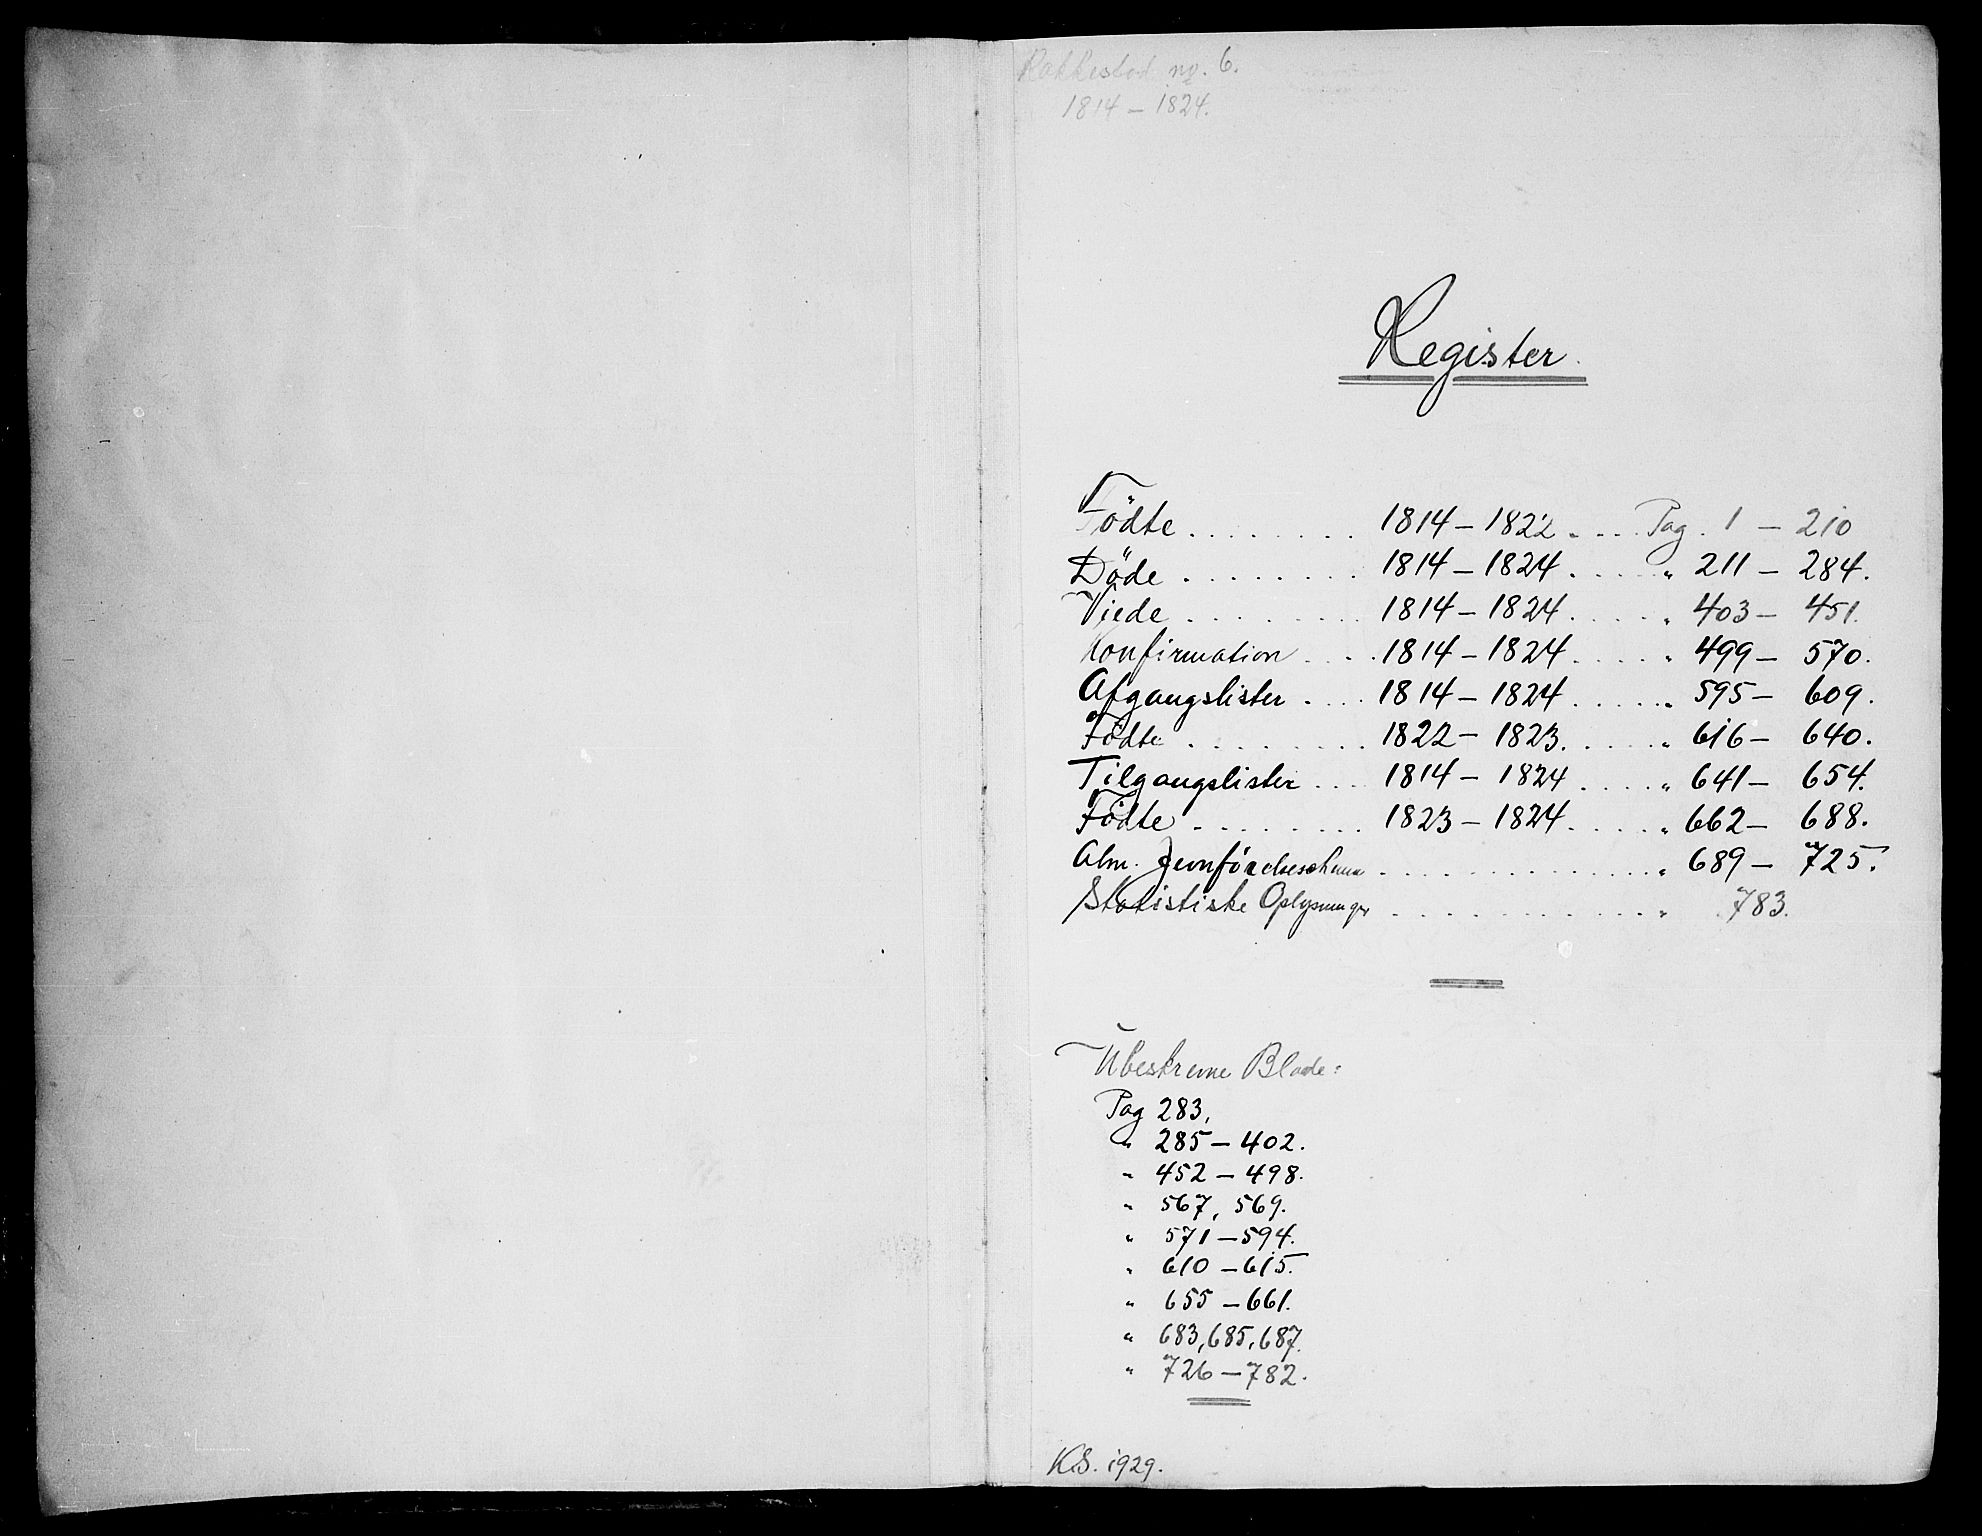 Rakkestad no. 6.
1814 – 1824.
Register.
Födte ........ 1814 – 1822 .... Pag. 1 – 210
Döde ........ 1814 – 1824 ..... " 211 – 284.
Viede ........ 1814 – 1824 ..... " 403 – 451.
Konfirmation .... 1814 – 1824 ..... " 499 – 570.
Afgangslister .... 1814 – 1824 ..... " 595 – 609.
Födte ........ 1822 – 1823 ..... " 616 – 640.
Tilgangslister ... 1814 – 1824 ..... " 641 – 654.
Födte ........ 1823 – 1824 ..... " 662 – 688.
Alm. Jevnförelsesschema ............. " 689 – 725.
Statistiske Oplysninger ............. " 783.
Ubeskrevne Blade:
Pag 283,
" 285 – 402.
" 452 – 498.
" 567, 569.
" 571 – 594.
" 610 – 615.
" 655 – 661.
" 683, 685, 687.
" 726 – 782.
K.S. 1929.